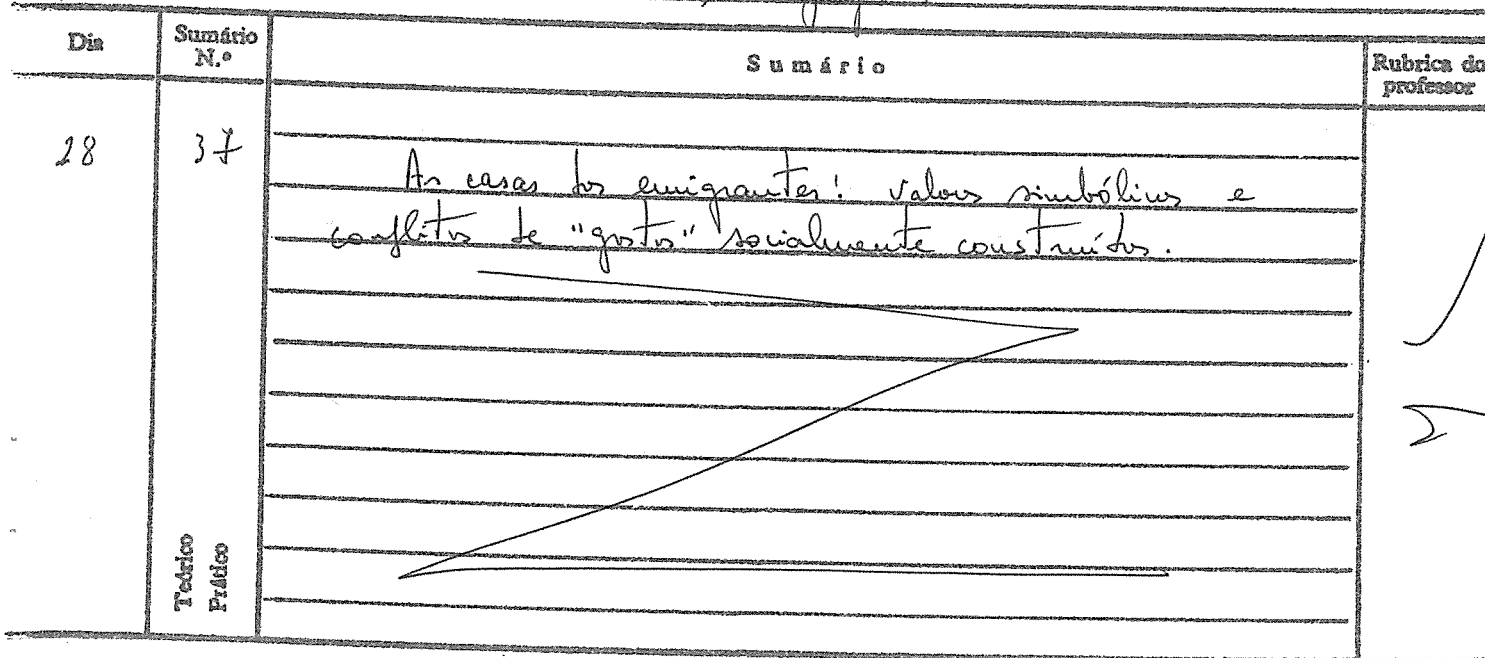 Dia
Sumário
N.º
Sumário
Rubrica do
professor
28
37
As casas dos emigrantes: valores simbólicos e
conflitos de "gostos" socialmente construídos.
Teórico
Prático